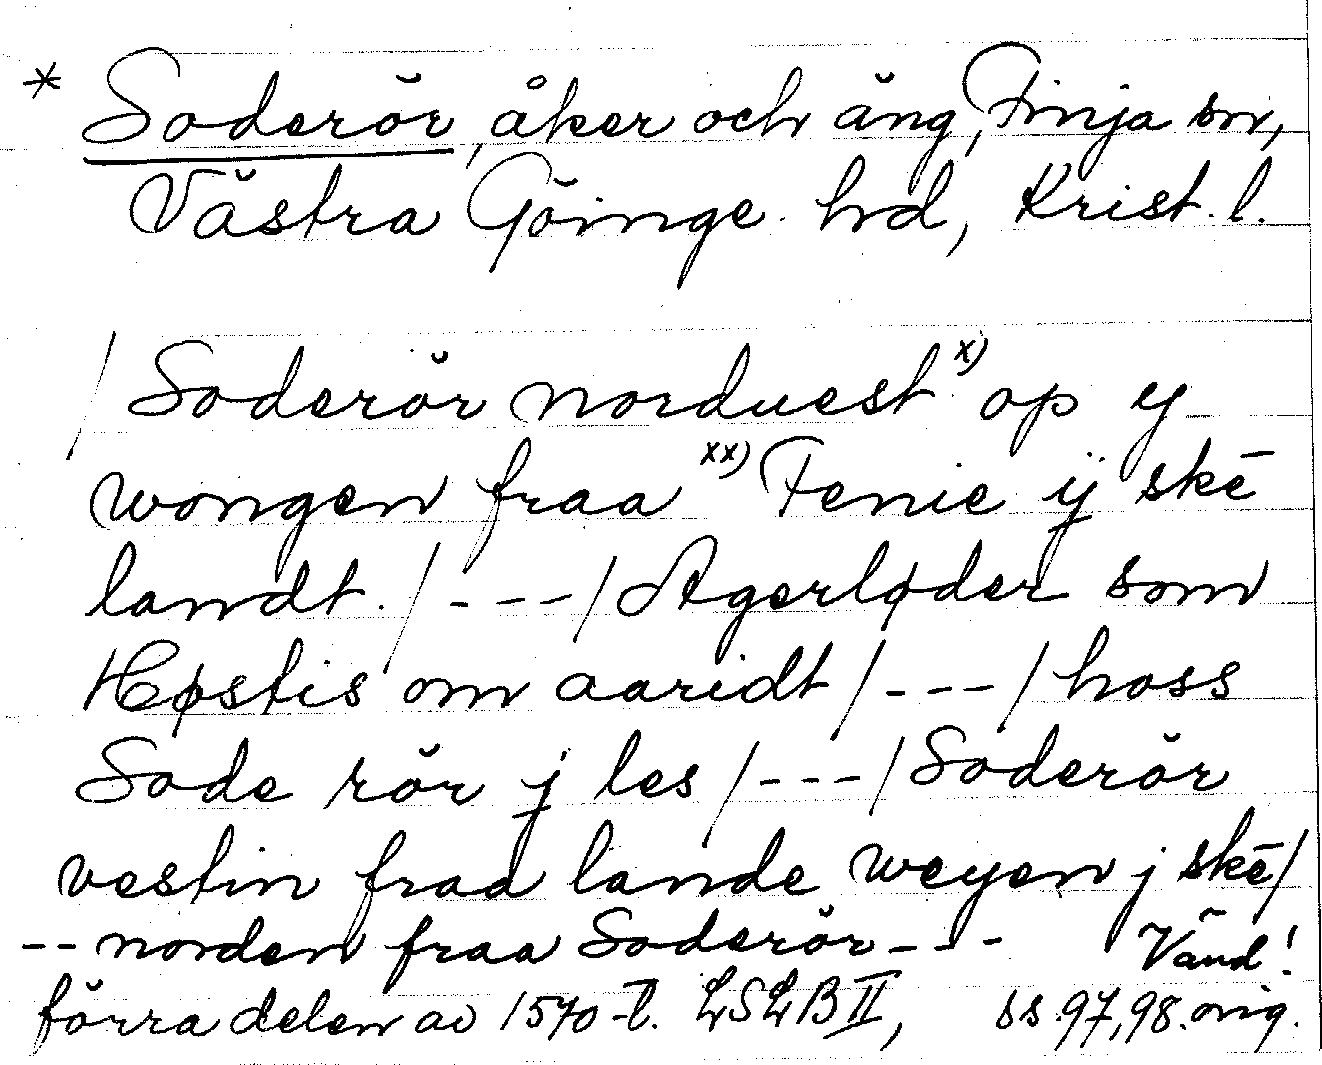 * Soderör, åker och äng, Finja sn,
Västra Göinge hd, Krist. l.
/Soderör norduest x) op y
wongen fraa xx) Fenie ij skē
landt./---/Agerløder som
Høstis om aaridt/---/hoss
Sode rör j les/---/Soderör
vestin fraa lande weyen j skē/
-- norden fraa Soderör--- Vänd!
förra delen av 1570-t. LSLB II, ss. 97, 98. orig.